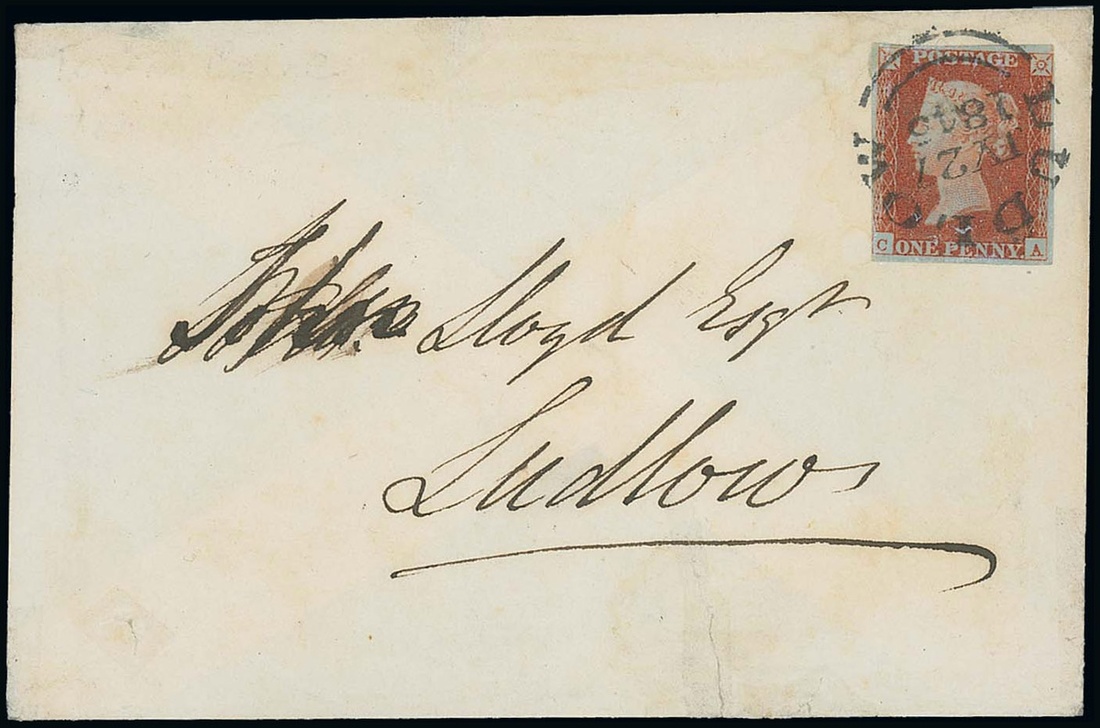 POSTAGE
ONE PENNY
C A
LUDLOW
John Lloyd Esqr
Ludlow